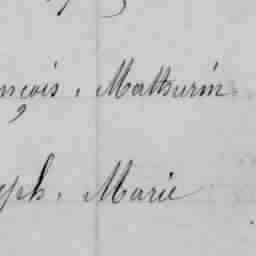 nçois, Mathurin
eph, Marie